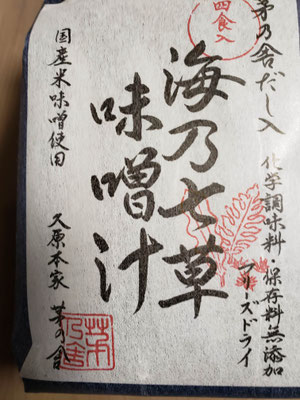 四食入
茅乃舎だし入
化学調味料・保存料無添加
フリーズドライ
海乃七草
味噌汁
国産米味噌使用
久原本家 茅の舎
茅乃舎